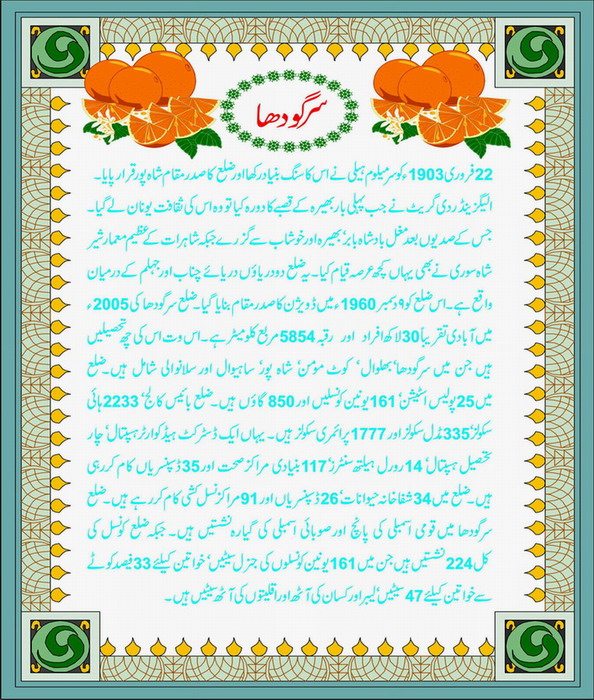 سرگودھا
22 فروری 1903ء کو سر میلوم ہیلی نے اس کا سنگ بنیاد رکھا اور ضلع کا صدر مقام شاہ پور قرار پایا۔
الیگزینڈر دی گریٹ نے جب پہلی بار بھیرہ کے قصبے کا دورہ کیا تو وہ اس کی ثقافت یونان لے گیا۔
جس کے صدیوں بعد مغل بادشاہ بابر، بھیرہ اور خوشاب سے گزرے جبکہ شاہرات کے عظیم معمار شیر
شاہ سوری نے بھی یہاں کچھ عرصہ قیام کیا۔ یہ ضلع دو دریاؤں دریائے چناب اور جہلم کے درمیان
واقع ہے۔ اس ضلع کو ۹ دسمبر 1960ء میں ڈویژن کا صدر مقام بنایا گیا۔ ضلع سرگودھا کی 2005ء
میں آبادی تقریباً 30 لاکھ افراد اور رقبہ 5854 مربع کلومیٹر ہے۔ اس وقت اس کی چھ تحصیلیں
ہیں جن میں سرگودھا، بھلوال، کوٹ مؤمن، شاہ پور، ساہیوال اور سلانوالی شامل ہیں۔ ضلع
میں 25 پولیس اسٹیشن، 161 یونین کونسلیں اور 850 گاؤں ہیں۔ ضلع بائیس کالج، 2233 ہائی
سکولز، 335 مڈل سکولز اور 1777 پرائمری سکولز ہیں۔ یہاں ایک ڈسٹرکٹ ہیڈ کوارٹر ہسپتال، چار
تحصیل ہسپتال، 14 رورل ہیلتھ سنٹرز، 117 بنیادی مراکز صحت اور 35 ڈسپنسریاں کام کر رہی
ہیں۔ ضلع میں 34 شفاخانہ حیوانات، 26 ڈسپنسریاں اور 91 مراکز نسل کشی کام کر رہے ہیں۔ ضلع
سرگودھا میں قومی اسمبلی کی پانچ اور صوبائی اسمبلی کی گیارہ نشستیں ہیں۔ جبکہ ضلع کونسل کی
کل 224 نشستیں ہیں جن میں 161 یونین کونسلوں کی جنرل سیٹیں، خواتین کیلئے 33 فیصد کوٹے
سے خواتین کیلئے 47 سیٹیں، لیبر اور کسان کی آٹھ اور اقلیتوں کی آٹھ سیٹیں ہیں۔